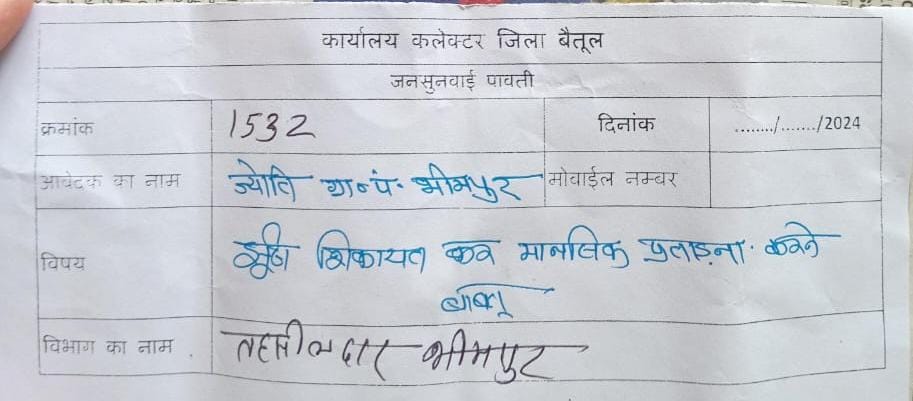 कार्यालय कलेक्टर जिला बैतूल
जनसुनवाई पावती
क्रमांक 1532 दिनांक ......../......./2024
आवेदक का नाम ज्योति ग्रा०पं० भीमपुर मोबाईल नम्बर
विषय झूठी शिकायत कर मानसिक प्रताड़ना करने
बाबत्
विभाग का नाम तहसीलदार भीमपुर